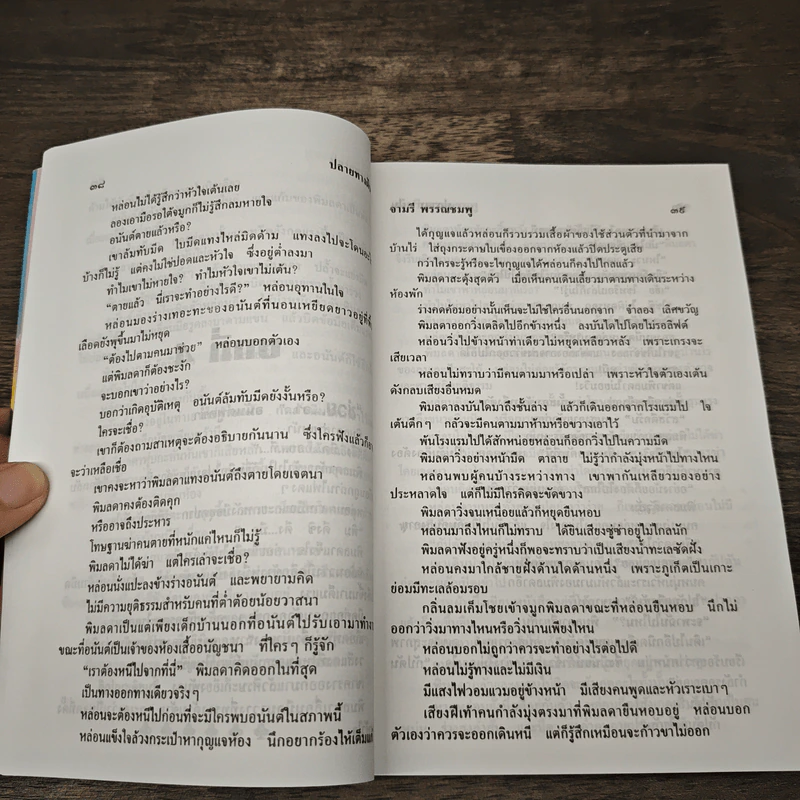 ๓๘
ปลายทาง
หล่อนไม่ได้รู้สึกว่าหัวใจเต้นเลย
ลองเอามือรอใต้จมูกก็ไม่รู้สึกลมหายใจ
อนันต์ตายแล้วหรือ?
เขาล้มทับมีด ใบมีดแทงไหล่มิดด้าม แทงลงไปจะโดน
บ้างก็ไม่รู้ แต่คงไม่ใช่ปอดและหัวใจ ซึ่งอยู่ต่ำลงมา
ทำไมเขาไม่หายใจ? ทำไมหัวใจเขาไม่เต้น?
"ตายแล้ว นี่เราจะทำอย่างไรดี?" หล่อนอุทานในใจ
หล่อนมองร่างเทอะทะของอนันต์ที่นอนเหยียดยาวอยู่ที่
เลือดยังพุขึ้นมาไม่หยุด
"ต้องไปตามคนมาช่วย" หล่อนบอกตัวเอง
แต่พิมลดาก็ต้องชะงัก
จะบอกเขาว่าอย่างไร?
บอกว่าเกิดอุบัติเหตุ อนันต์ล้มทับมีดยังงั้นหรือ?
ใครจะเชื่อ?
เขาก็ต้องถามสาเหตุจะต้องอธิบายกันนาน ซึ่งใครฟังแล้วก็
จะว่าเหลือเชื่อ
เขาคงจะหาว่าพิมลดาแทงอนันต์ถึงตายโดยเจตนา
พิมลดาคงต้องติดคุก
หรืออาจถึงประหาร
โทษฐานฆ่าคนตายที่หนักแค่ไหนก็ไม่รู้
พิมลดาไม่ได้ฆ่า แต่ใครเล่าจะเชื่อ?
หล่อนนั่งแปะลงข้างร่างอนันต์ และพยายามคิด
ไม่มีความยุติธรรมสำหรับคนที่ต่ำต้อยน้อยวาสนา
พิมลดาเป็นแต่เพียงเด็กบ้านนอกที่อนันต์ไปรับเอามาทำงาน
ขณะที่อนันต์เป็นเจ้าของห้องเสื้ออนัญชนา ที่ใครๆ ก็รู้จัก
"เราต้องหนีไปจากที่นี่" พิมลดาคิดออกในที่สุด
เป็นทางออกทางเดียวจริงๆ
หล่อนจะต้องหนีไปก่อนที่จะมีใครพบอนันต์ในสภาพนี้
หล่อนแข็งใจล้วงกระเป๋าหากุญแจห้อง นึกอยากร้องไห้เต็ม
จามรี พรรณชมพู
๓๙
ได้กุญแจแล้วหล่อนก็รวบรวมเสื้อผ้าของใช้ส่วนตัวที่นำมาจาก
บ้านไร่ ใส่ถุงกระดาษใบเขื่องออกจากห้องแล้วปิดประตูเสีย
กว่าใครจะรู้หรือจะไขกุญแจได้หล่อนก็คงไปไกลแล้ว
พิมลดาสะดุ้งสุดตัว เมื่อเห็นคนเดินเลี้ยวมาตามทางเดินระหว่าง
ห้องพัก
ร่างคดค้อมอย่างนั้นเห็นจะไม่ใช่ใครอื่นนอกจาก จำลอง เลิศขวัญ
พิมลดาออกวิ่งเตลิดไปอีกข้างหนึ่ง ลงบันไดไปโดยไม่รอลิฟต์
หล่อนวิ่งไปข้างหน้าท่าเดียวไม่หยุดเหลียวหลัง เพราะเกรงจะ
เสียเวลา
หล่อนไม่ทราบว่ามีคนตามมาหรือเปล่า เพราะหัวใจตัวเองเต้น
ดังกลบเสียงอื่นหมด
พิมลดาลงบันไดมาถึงชั้นล่าง แล้วก็เดินออกจากโรงแรมไป ใจ
เต้นตึกๆ กลัวจะมีคนตามมาห้ามหรือขวางเอาไว้
พ้นโรงแรมไปได้สักหน่อยหล่อนก็ออกวิ่งไปในความมืด
พิมลดาวิ่งอย่างหน้ามืด ตาลาย ไม่รู้ว่ากำลังมุ่งหน้าไปทางไหน
หล่อนพบผู้คนบ้างระหว่างทาง เขาพากันเหลียวมองอย่าง
ประหลาดใจ แต่ก็ไม่มีใครคิดจะขัดขวาง
พิมลดาวิ่งจนเหนื่อยแล้วก็หยุดยืนหอบ
หล่อนมาถึงไหนก็ไม่ทราบ ได้ยินเสียงซู่ซ่าอยู่ไม่ไกลนัก
พิมลดาฟังอยู่ครู่หนึ่งก็พอจะทราบว่าเป็นเสียงน้ำทะเลซัดฝั่ง
หล่อนคงมาใกล้ชายฝั่งด้านใดด้านหนึ่ง เพราะภูเก็ตเป็นเกาะ
ย่อมมีทะเลล้อมรอบ
กลิ่นลมเค็มโชยเข้าจมูกพิมลดาขณะที่หล่อนยืนหอบ นึกไม่
ออกว่าวิ่งมาทางไหนหรือวิ่งนานเพียงไหน
หล่อนบอกไม่ถูกว่าควรจะทำอย่างไรต่อไปดี
หล่อนไม่รู้ทางและไม่มีเงิน
มีแสงไฟวอมแวมอยู่ข้างหน้า มีเสียงคนพูดและหัวเราะเบาๆ
เสียงฝีเท้าคนกำลังมุ่งตรงมาที่พิมลดายืนหอบอยู่ หล่อนบอก
ตัวเองว่าควรจะออกเดินหนี แต่ก็รู้สึกเหมือนจะก้าวขาไม่ออก